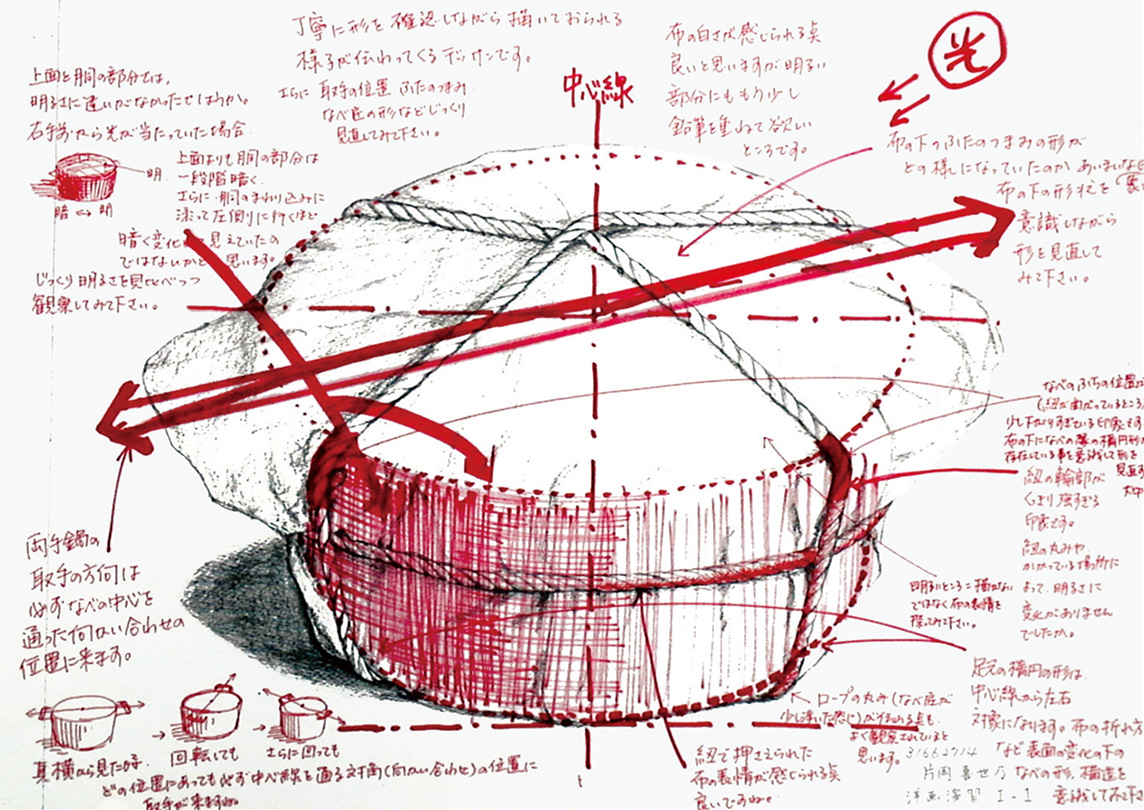 丁寧に形を確認しながら描いておられる
様子が伝わってくるデッサンです。
さらに 取手の位置 ふたのつまみ
なべ底の形などじっくり
見直してみて下さい。
布の白さが感じられる点
良いと思いますが明るい
部分にももう少し
鉛筆を重ねて欲しい
ところです。
光
中心線
上面と胴の部分では、
明るさに違いがなかったでしょうか。
右手前から光が当たっていた場合
明
暗 ↔ 明
上面よりも胴の部分は
一段階暗く
さらに胴のまわり込みに
添って左側に行くほど
暗く変化して見えていたの
ではないかと思います。
じっくり明るさを見比べつつ
観察してみて下さい。
布の下のふたのつまみの形が
どの様になっていたのか あいまい
布の下の形状を
意識しながら
形を見直して
みて下さい。
なべのふちの位置
(紐が曲がっているところ)
少し下がりすぎている印象です
布の下になべの
存在している事を意識して形を
見直す
紐の輪郭が
くっきり強すぎる
印象です。
紐の丸みや
かかっている場所に
よって、明るさに
変化がありません
でしたか。
明るいところ=描かない
ではなく布の表情を
探してみて下さい。
両手鍋の
取手の方向は
必ずなべの中心を
通った向い合わせの
位置に来ます。
真横から見た時
回転しても
さらに回っても
どの位置にあっても必ず中心線を通る対角(向い合わせ)の位置に
取手が来ますね。
紐で押さえられた
布の表情が感じられる点
良いですね。
ロープの丸み(なべ底が
少し浮いた感じ)が伝わる点も
よく観察されていると
思います。
足元の楕円の形は
中心線から左右
対像になります。布の折れ方
など表面の変化の下の
なべの形、構造を
意識してみて下
31662714
片岡喜世乃
洋画演習 I-1